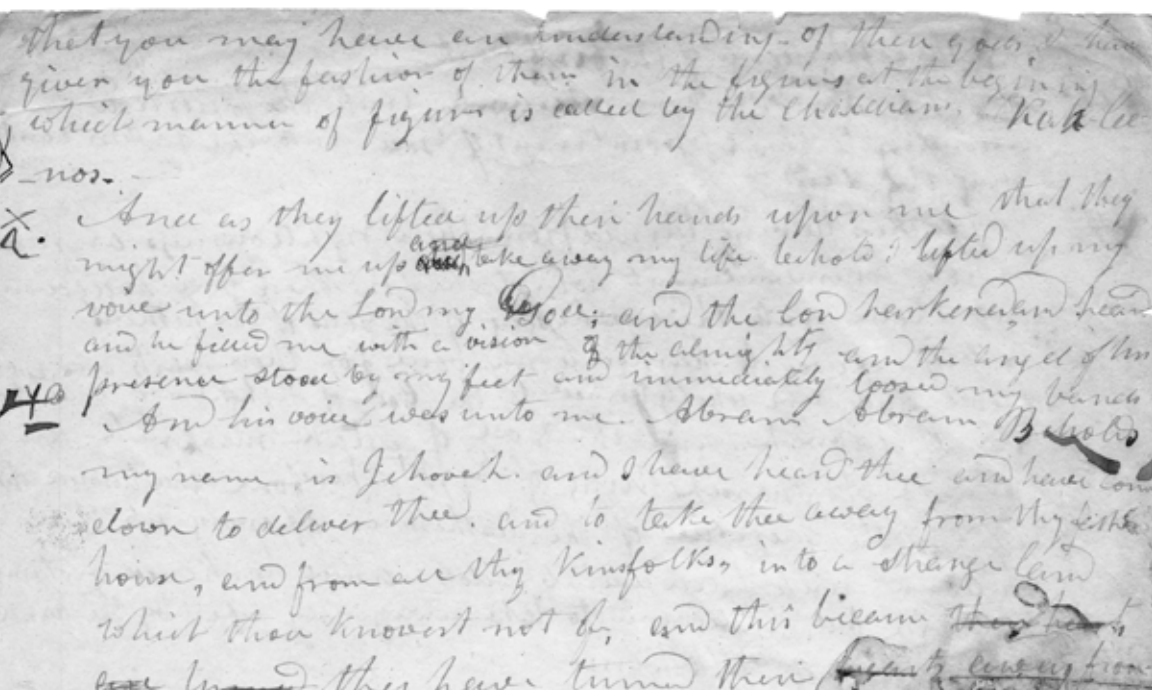 that you may have an understanding of these gods I have
given you the fashion of them in the figures at the begining
which manner of figures is called by the Chaldians Kah lee
-nos.
And as they lifted up their hands upon me that they
and
might offer me up take away my life behold I lifted up my
voice unto the Lord my God; and the Lord hearkened and heard
and he filled me with a vision of the almighty and the angel of his
presence stood by my feet and immediately loosed my bands
And his voice was unto me. Abram Abram Behold
my name is Jehovah. and I have heard thee and have come
down to deliver thee. and to take thee away from thy father
house, and from all thy Kinsfolks, into a strange land
which thou knowest not of, and this because their hearts
they have turned their hearts away from